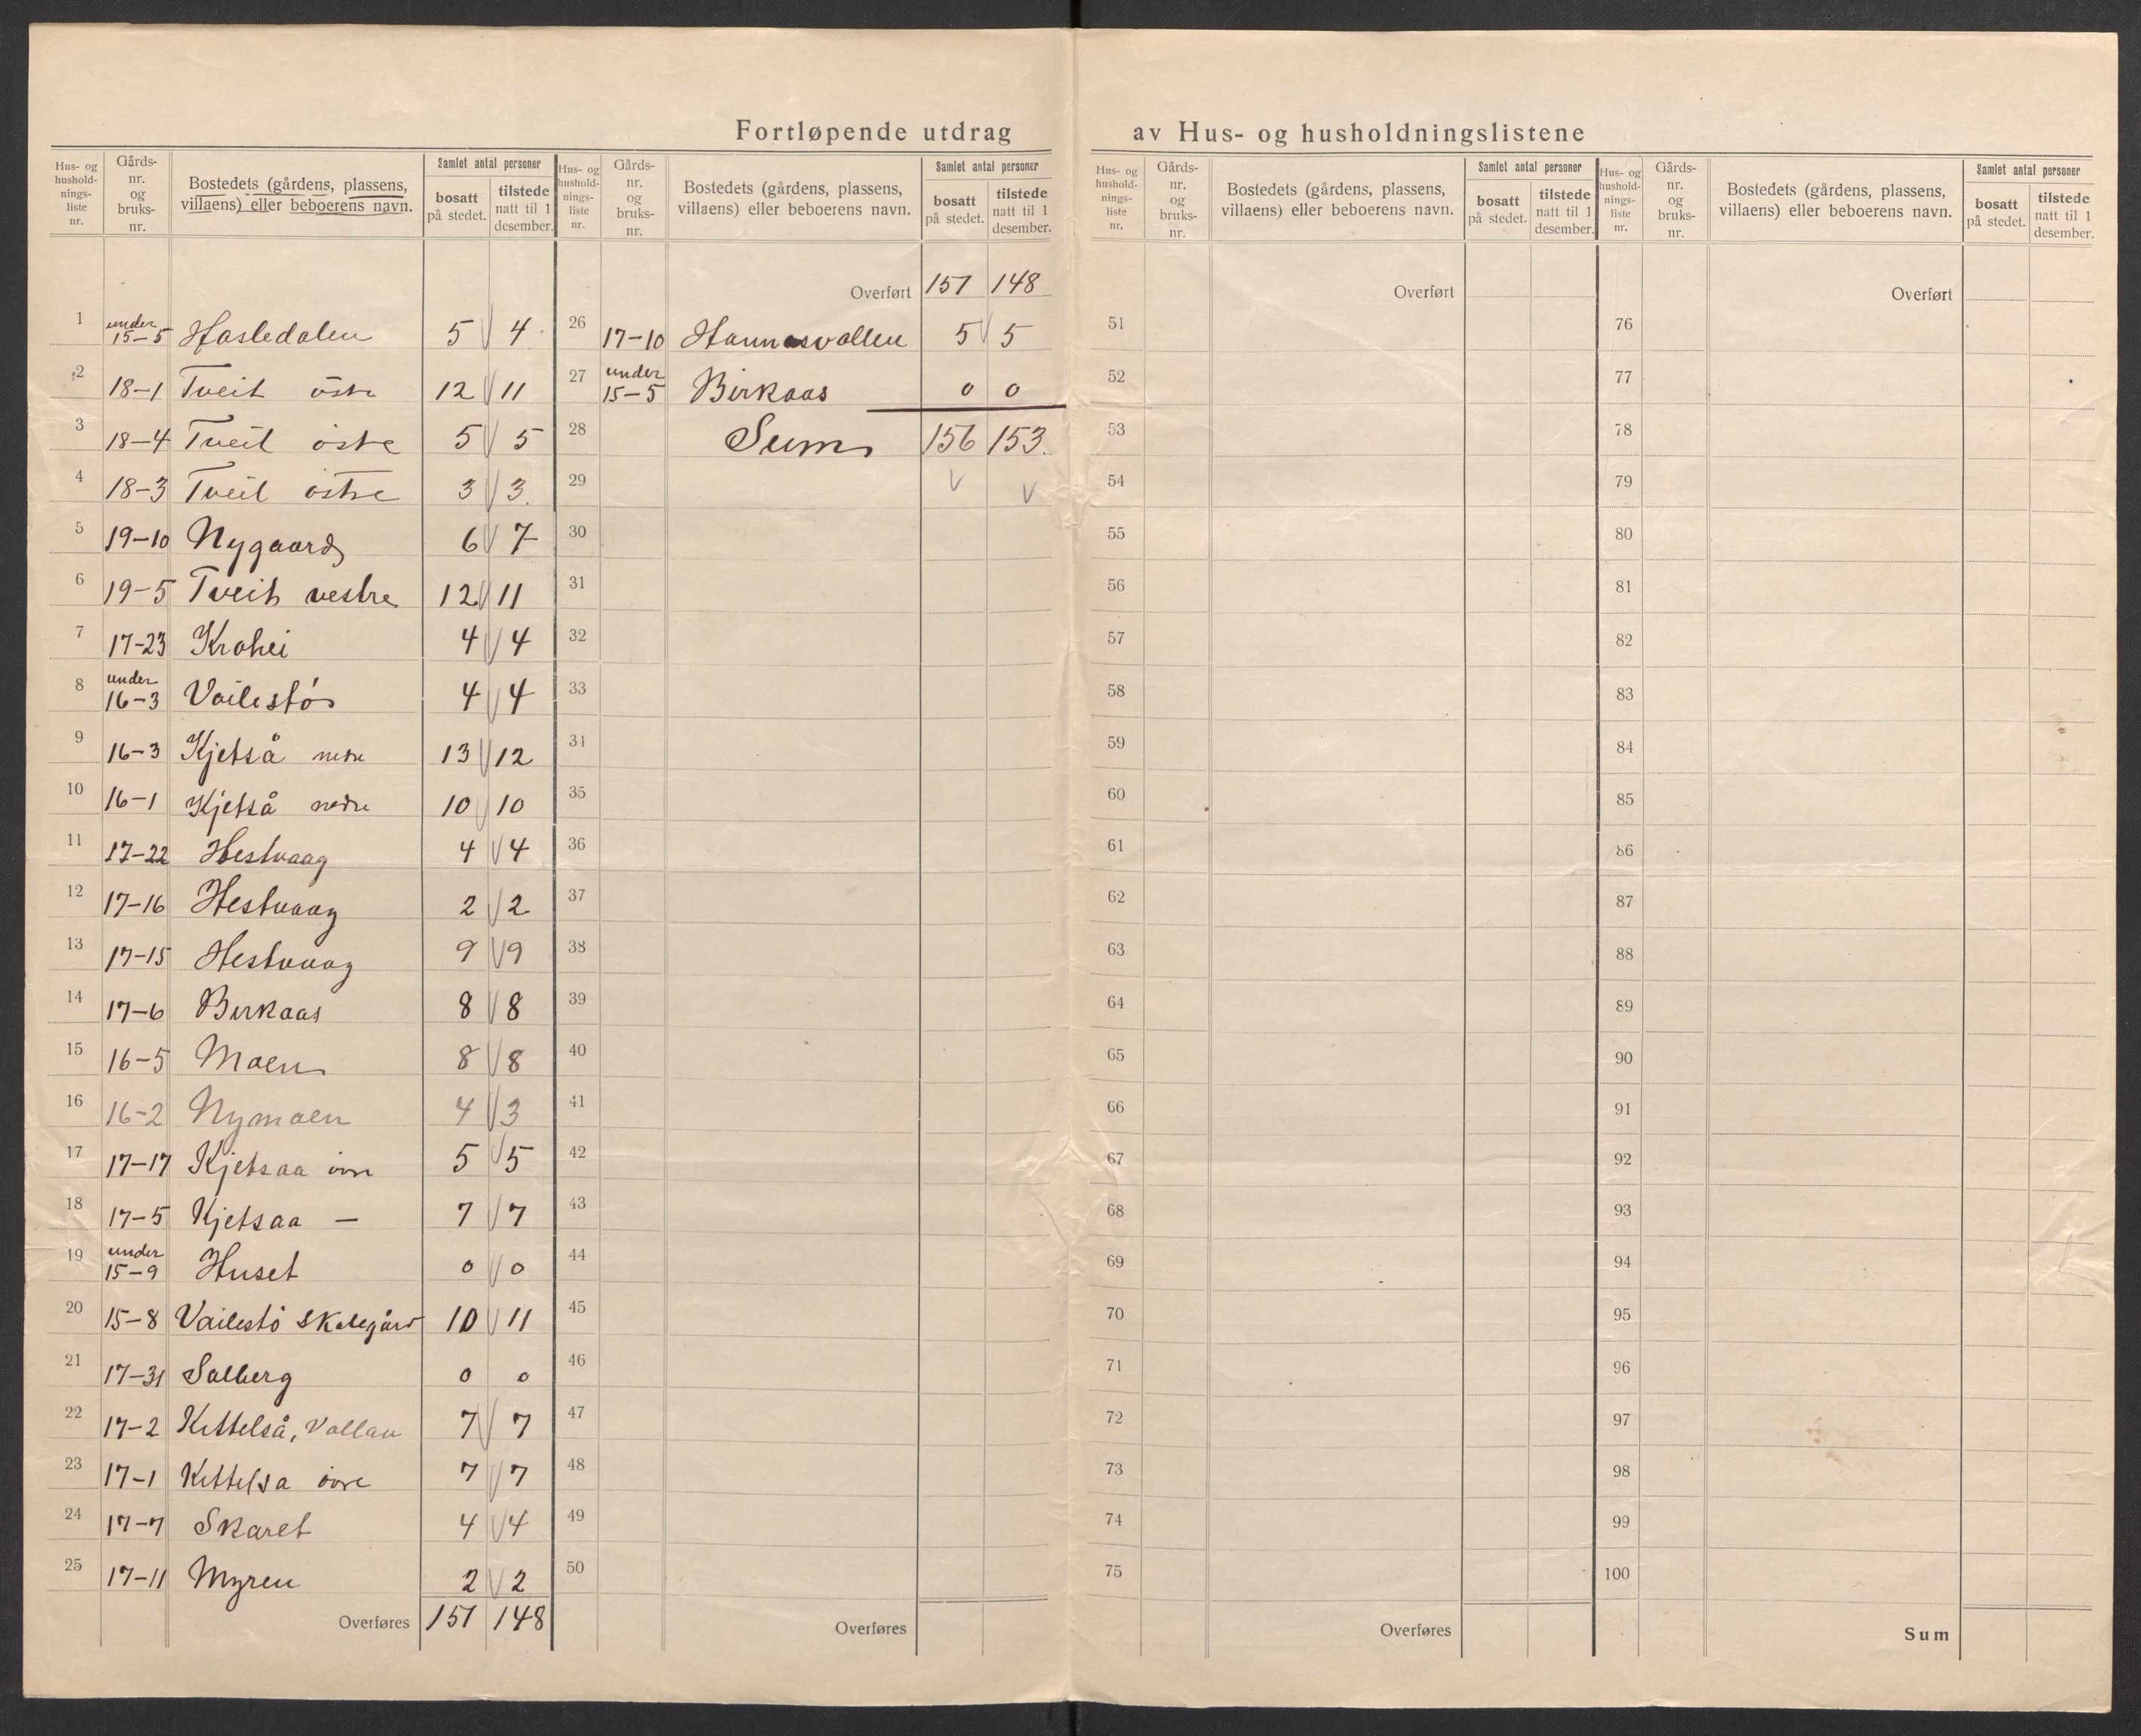 Fortløpende utdrag av Hus- og husholdningslistene
Hus- og husholdningsliste nr. | Gårds-nr. og bruks-nr. | Bostedets (gårdens, plassens, villaens) eller beboerens navn. | Samlet antal personer: bosatt på stedet. | tilstede natt til 1 desember.
1 under 15-5 Hasledalen 5 4
2 18-1 Tveit östre 12 11
3 18-4 Tveit östre 5 5
4 18-3 Tveit östre 3 3
5 19-10 Nygaard 6 7
6 19-5 Tveit vestre 12 11
7 17-23 Krohei 4 4
8 under 16-3 Vailestö 4 4
9 16-3 Kjetså nedre 13 12
10 16-1 Kjetså nedre 10 10
11 17-22 Hestvaag 4 4
12 17-16 Hestvaag 2 2
13 17-15 Hestvaag 9 9
14 17-6 Birkaas 8 8
15 16-5 Moen 8 8
16 16-2 Nymoen 4 3
17 17-17 Kjetsaa övre 5 5
18 17-5 Kjetsaa — 7 7
19 under 15-9 Huset 0 0
20 15-8 Vailestö skolegård 10 11
21 17-31 Solberg 0 0
22 17-2 Kittelså, Vollan 7 7
23 17-1 Kittelsa övre 7 7
24 17-7 Skaret 4 4
25 17-11 Myren 2 2
Overføres 151 148
Hus- og husholdningsliste nr. | Gårds-nr. og bruks-nr. | Bostedets (gårdens, plassens, villaens) eller beboerens navn. | Samlet antal personer: bosatt på stedet. | tilstede natt til 1 desember.
Overført 151 148
26 17-10 Hannasvollen 5 5
27 under 15-5 Birkaas 0 0
28 Sum 156 153.
29
30
31
32
33
34
35
36
37
38
39
40
41
42
43
44
45
46
47
48
49
50
Overføres
Hus- og husholdningsliste nr. | Gårds-nr. og bruks-nr. | Bostedets (gårdens, plassens, villaens) eller beboerens navn. | Samlet antal personer: bosatt på stedet. | tilstede natt til 1 desember.
Overført
51
52
53
54
55
56
57
58
59
60
61
62
63
64
65
66
67
68
69
70
71
72
73
74
75
Overføres
Hus- og husholdningsliste nr. | Gårds-nr. og bruks-nr. | Bostedets (gårdens, plassens, villaens) eller beboerens navn. | Samlet antal personer: bosatt på stedet. | tilstede natt til 1 desember.
Overført
76
77
78
79
80
81
82
83
84
85
86
87
88
89
90
91
92
93
94
95
96
97
98
99
100
Sum